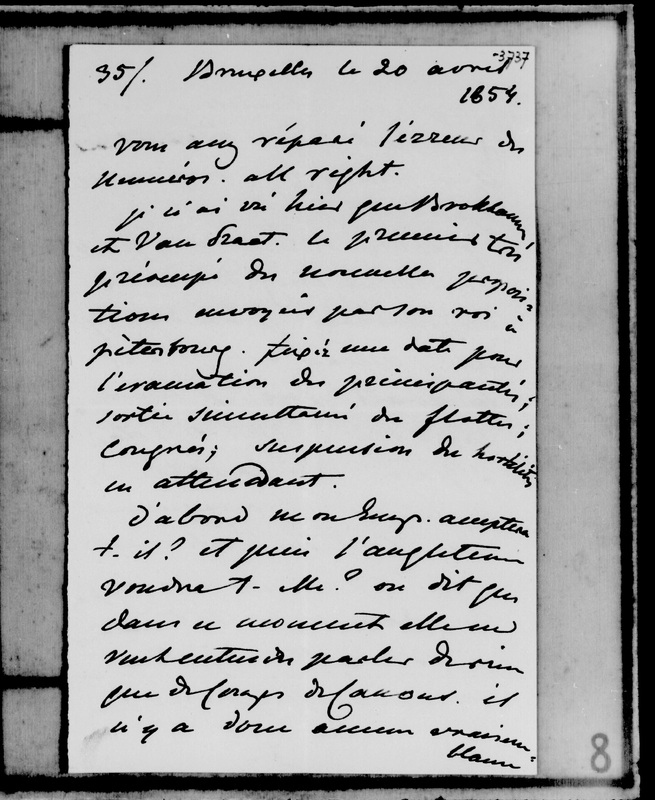 -3737
35/. Bruxelles le 20 avril
1854.
vous avez réparé l'erreur des
numéros. all right.
je n'ai vu hier que Brokhausen
et Van Praet. le premier très
préoccupé des nouvelles proposi=
tions envoyées par son roi à
pétersbourg. fixer une date pour
l'évacuation des principautés;
sortie simultanée des flottes;
Congrès; suspension des hostilités
en attendant.
d'abord mon Emp. acceptera
t-il? et puis l'angleterre
voudra t-elle? on dit que
dans ce moment elle ne
veut entendre parler de rien
que de Coups de Canons. il
n'y a donc aucun vraisem=
blance
8